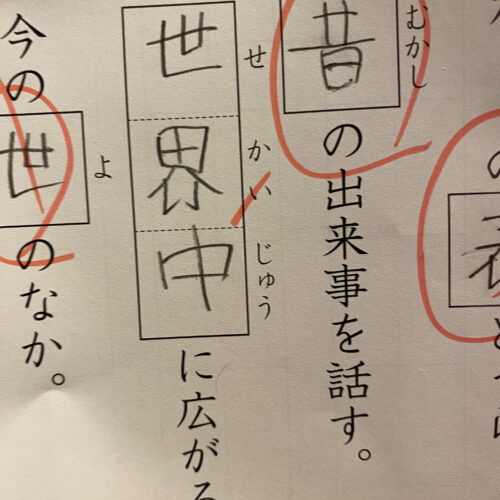 むかし
昔の出来事を話す。
せかいじゅう
世界中に広がる
よ
今の世のなか。